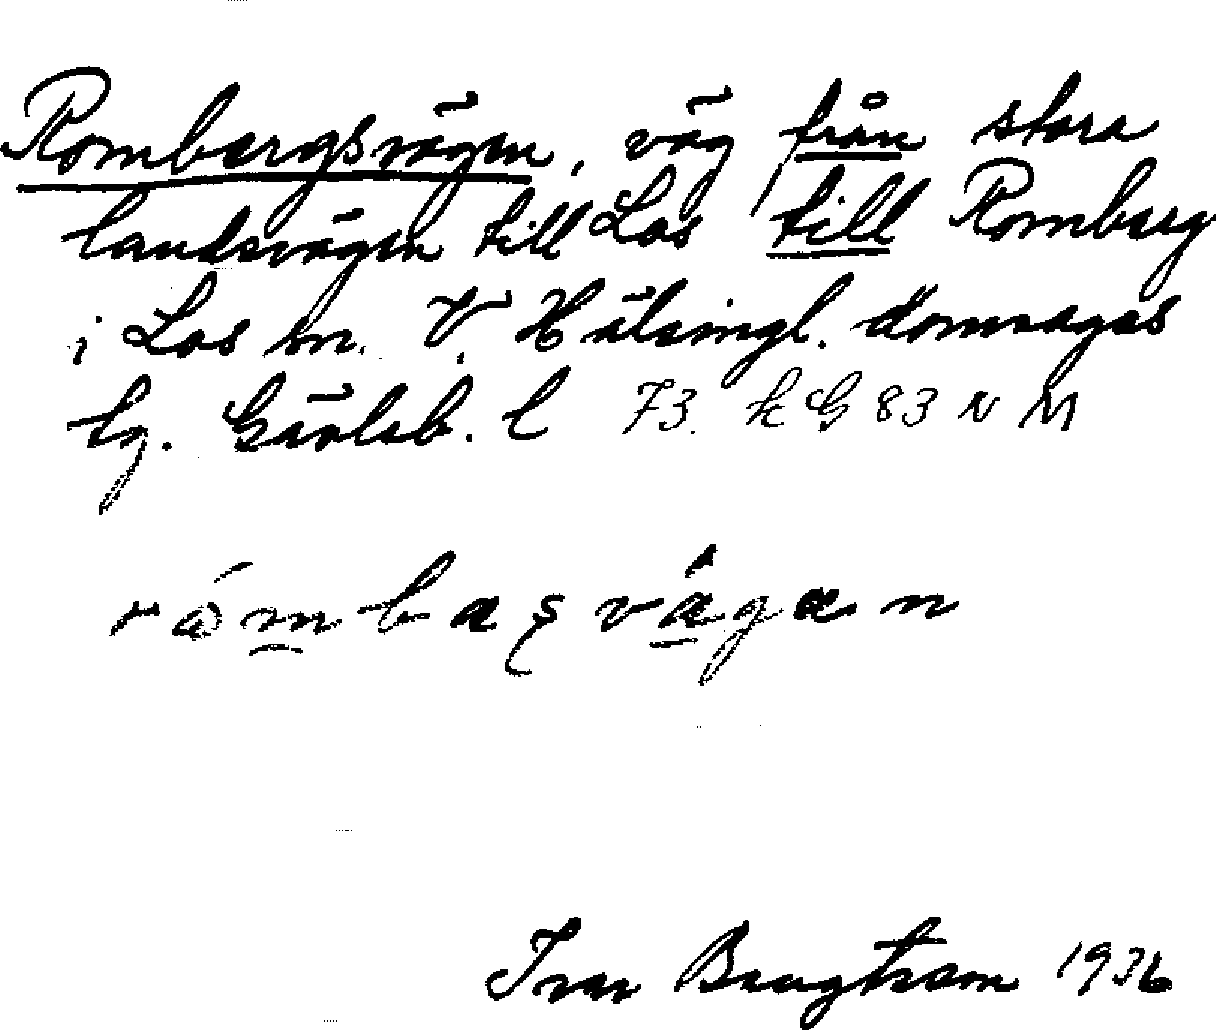 Rombergsvägen, väg från stora
landsvägen till Los till Romberg
i Los sn. V. Hälsingl. domsagas
tg. Gävleb. l 73. k G 83 N M
Ivar Bengtsson 1936